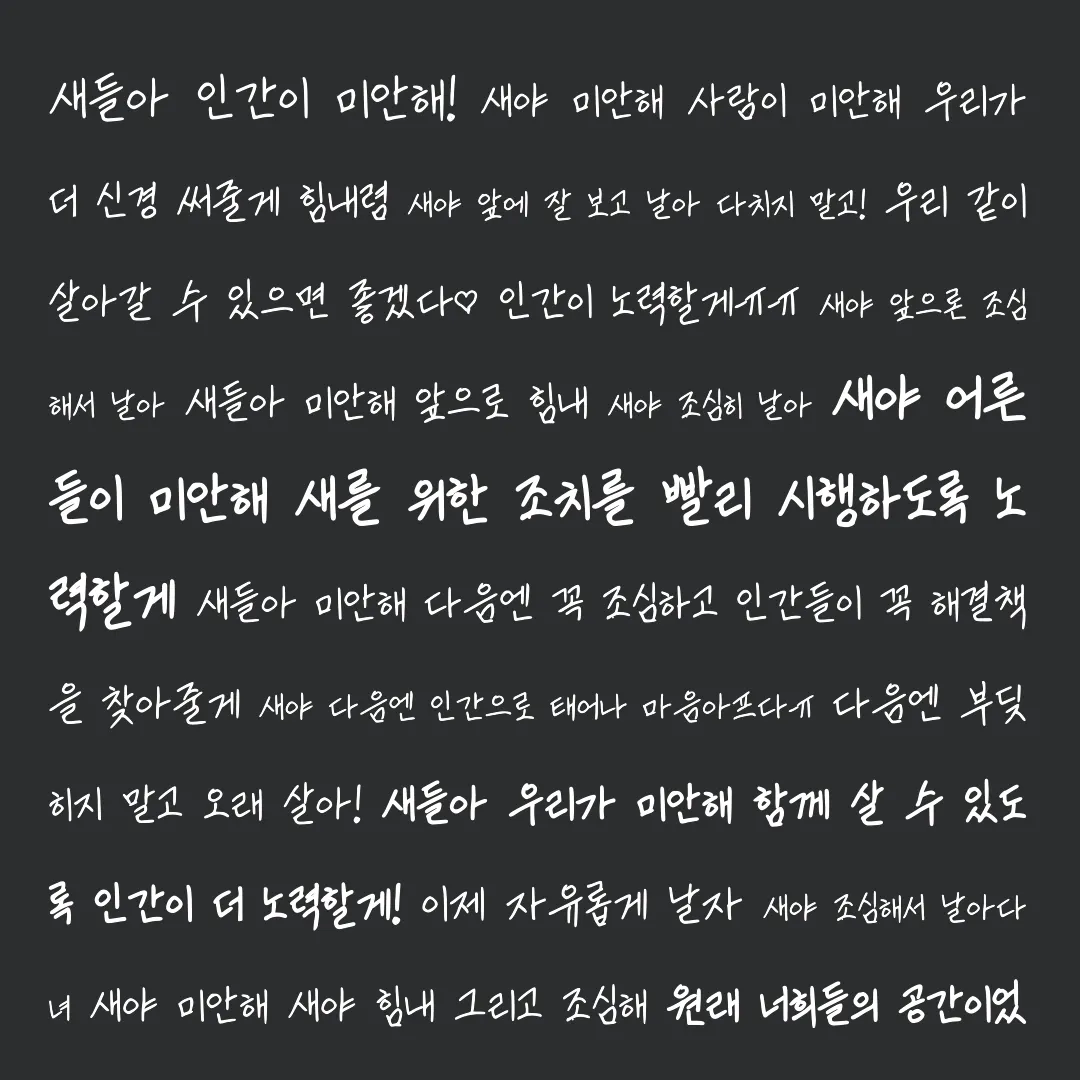 새들아 인간이 미안해! 새야 미안해 사람이 미안해 우리가
더 신경 써줄게 힘내렴 새야 앞에 잘 보고 날아 다치지 말고! 우리 같이
살아갈 수 있으면 좋겠다♡ 인간이 노력할게ㅠㅠ 새야 앞으론 조심
해서 날아 새들아 미안해 앞으로 힘내 새야 조심히 날아 새야 어른
들이 미안해 새를 위한 조치를 빨리 시행하도록 노
력할게 새들아 미안해 다음엔 꼭 조심하고 인간들이 꼭 해결책
을 찾아줄게 새야 다음엔 인간으로 태어나 마음아프다ㅠ 다음엔 부딪
히지 말고 오래 살아! 새들아 우리가 미안해 함께 살 수 있도
록 인간이 더 노력할게! 이제 자유롭게 날자 새야 조심해서 날아다
녀 새야 미안해 새야 힘내 그리고 조심해 원래 너희들의 공간이었